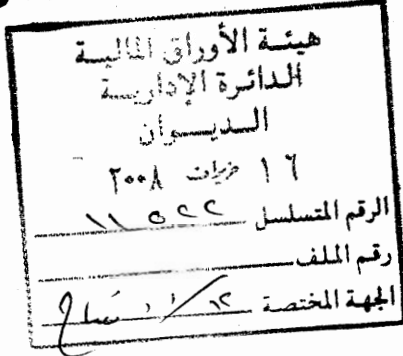 هيئة الأوراق المالية
الدائرة الإدارية
الديوان
١٦ حزيران ٢٠٠٨
الرقم المتسلسل ١١٥٢٢
رقم الملف
الجهة المختصة